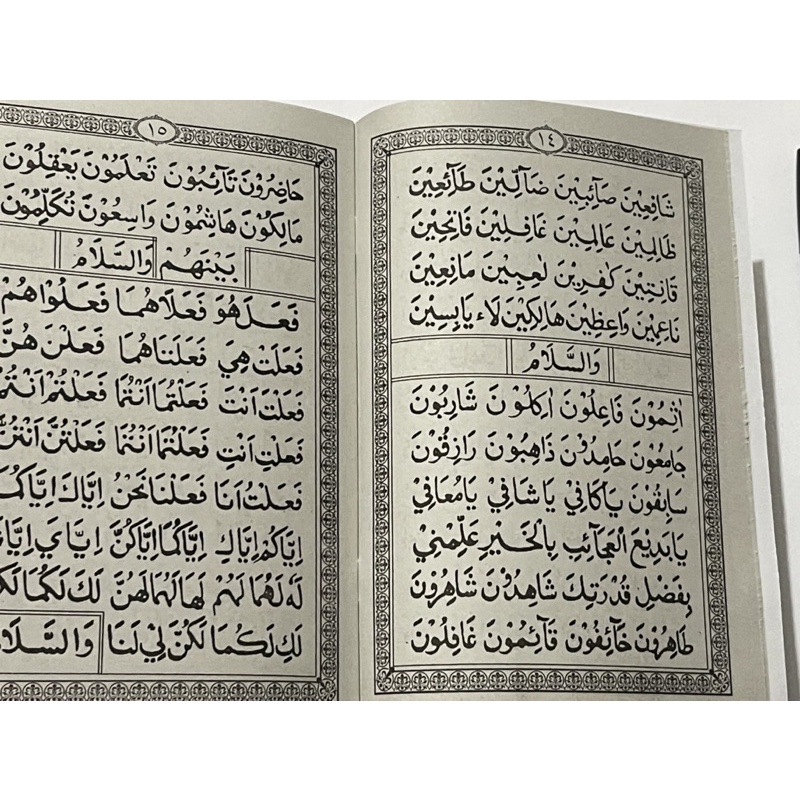 ١٤
شَافِعِيْنَ صَآئِبِيْنَ ضَآلِّيْنَ طَآئِعِيْنَ
ظَالِمِيْنَ عَالِمِيْنَ غَافِلِيْنَ فَاتِحِيْنَ
قَانِتِيْنَ كٰفِرِيْنَ لٰعِبِيْنَ مَانِعِيْنَ
نَاعِمِيْنَ وَاعِظِيْنَ هَالِكِيْنَ لَاء يَابِسِيْنَ
وَالسَّلَامُ
اٰثِمُوْنَ فَاعِلُوْنَ اٰكِلُوْنَ شَارِبُوْنَ
جَامِعُوْنَ حَامِدُوْنَ ذَاهِبُوْنَ رَازِقُوْنَ
سَابِقُوْنَ يَاكَافِيْ يَاشَافِيْ يَامُعَافِيْ
يَابَدِيْعَ الْعَجَآئِبِ بِالْخَيْرِ عَلِّمْنِيْ
بِفَضْلِ قُدْرَتِكَ شَاهِدُوْنَ شَاهِرُوْنَ
طَاهِرُوْنَ خَآئِفُوْنَ قَآئِمُوْنَ غَافِلُوْنَ
١٥
حَاضِرُوْنَ تَآئِبُوْنَ تَعْلَمُوْنَ يَعْقِلُوْنَ
مَالِكُوْنَ هَاشِمُوْنَ وَاسِعُوْنَ تُكَلِّمُوْنَ
بَيْنَهُمْ وَالسَّلَامُ
فَعَلَ هُوَ فَعَلَا هُمَا فَعَلُوْا هُمْ
فَعَلَتْ هِيَ فَعَلَتَا هُمَا فَعَلْنَ هُنَّ
فَعَلْتَ اَنْتَ فَعَلْتُمَا اَنْتُمَا فَعَلْتُمْ اَنْتُمْ
فَعَلْتِ اَنْتِ فَعَلْتُمَا اَنْتُمَا فَعَلْتُنَّ اَنْتُنَّ
فَعَلْتُ اَنَا فَعَلْنَا نَحْنُ اِيَّاكَ اِيَّاكُمَا
اِيَّاكُمْ اِيَّاكِ اِيَّاكُمَا اِيَّاكُنَّ اِيَّايَ
لَهُ لَهُمَا لَهُمْ لَهَا لَهُمَا لَهُنَّ لَكَ لَكُمَا
لَكِ لَكُمَا لَكُنَّ لِيْ لَنَا وَالسَّلَامُ